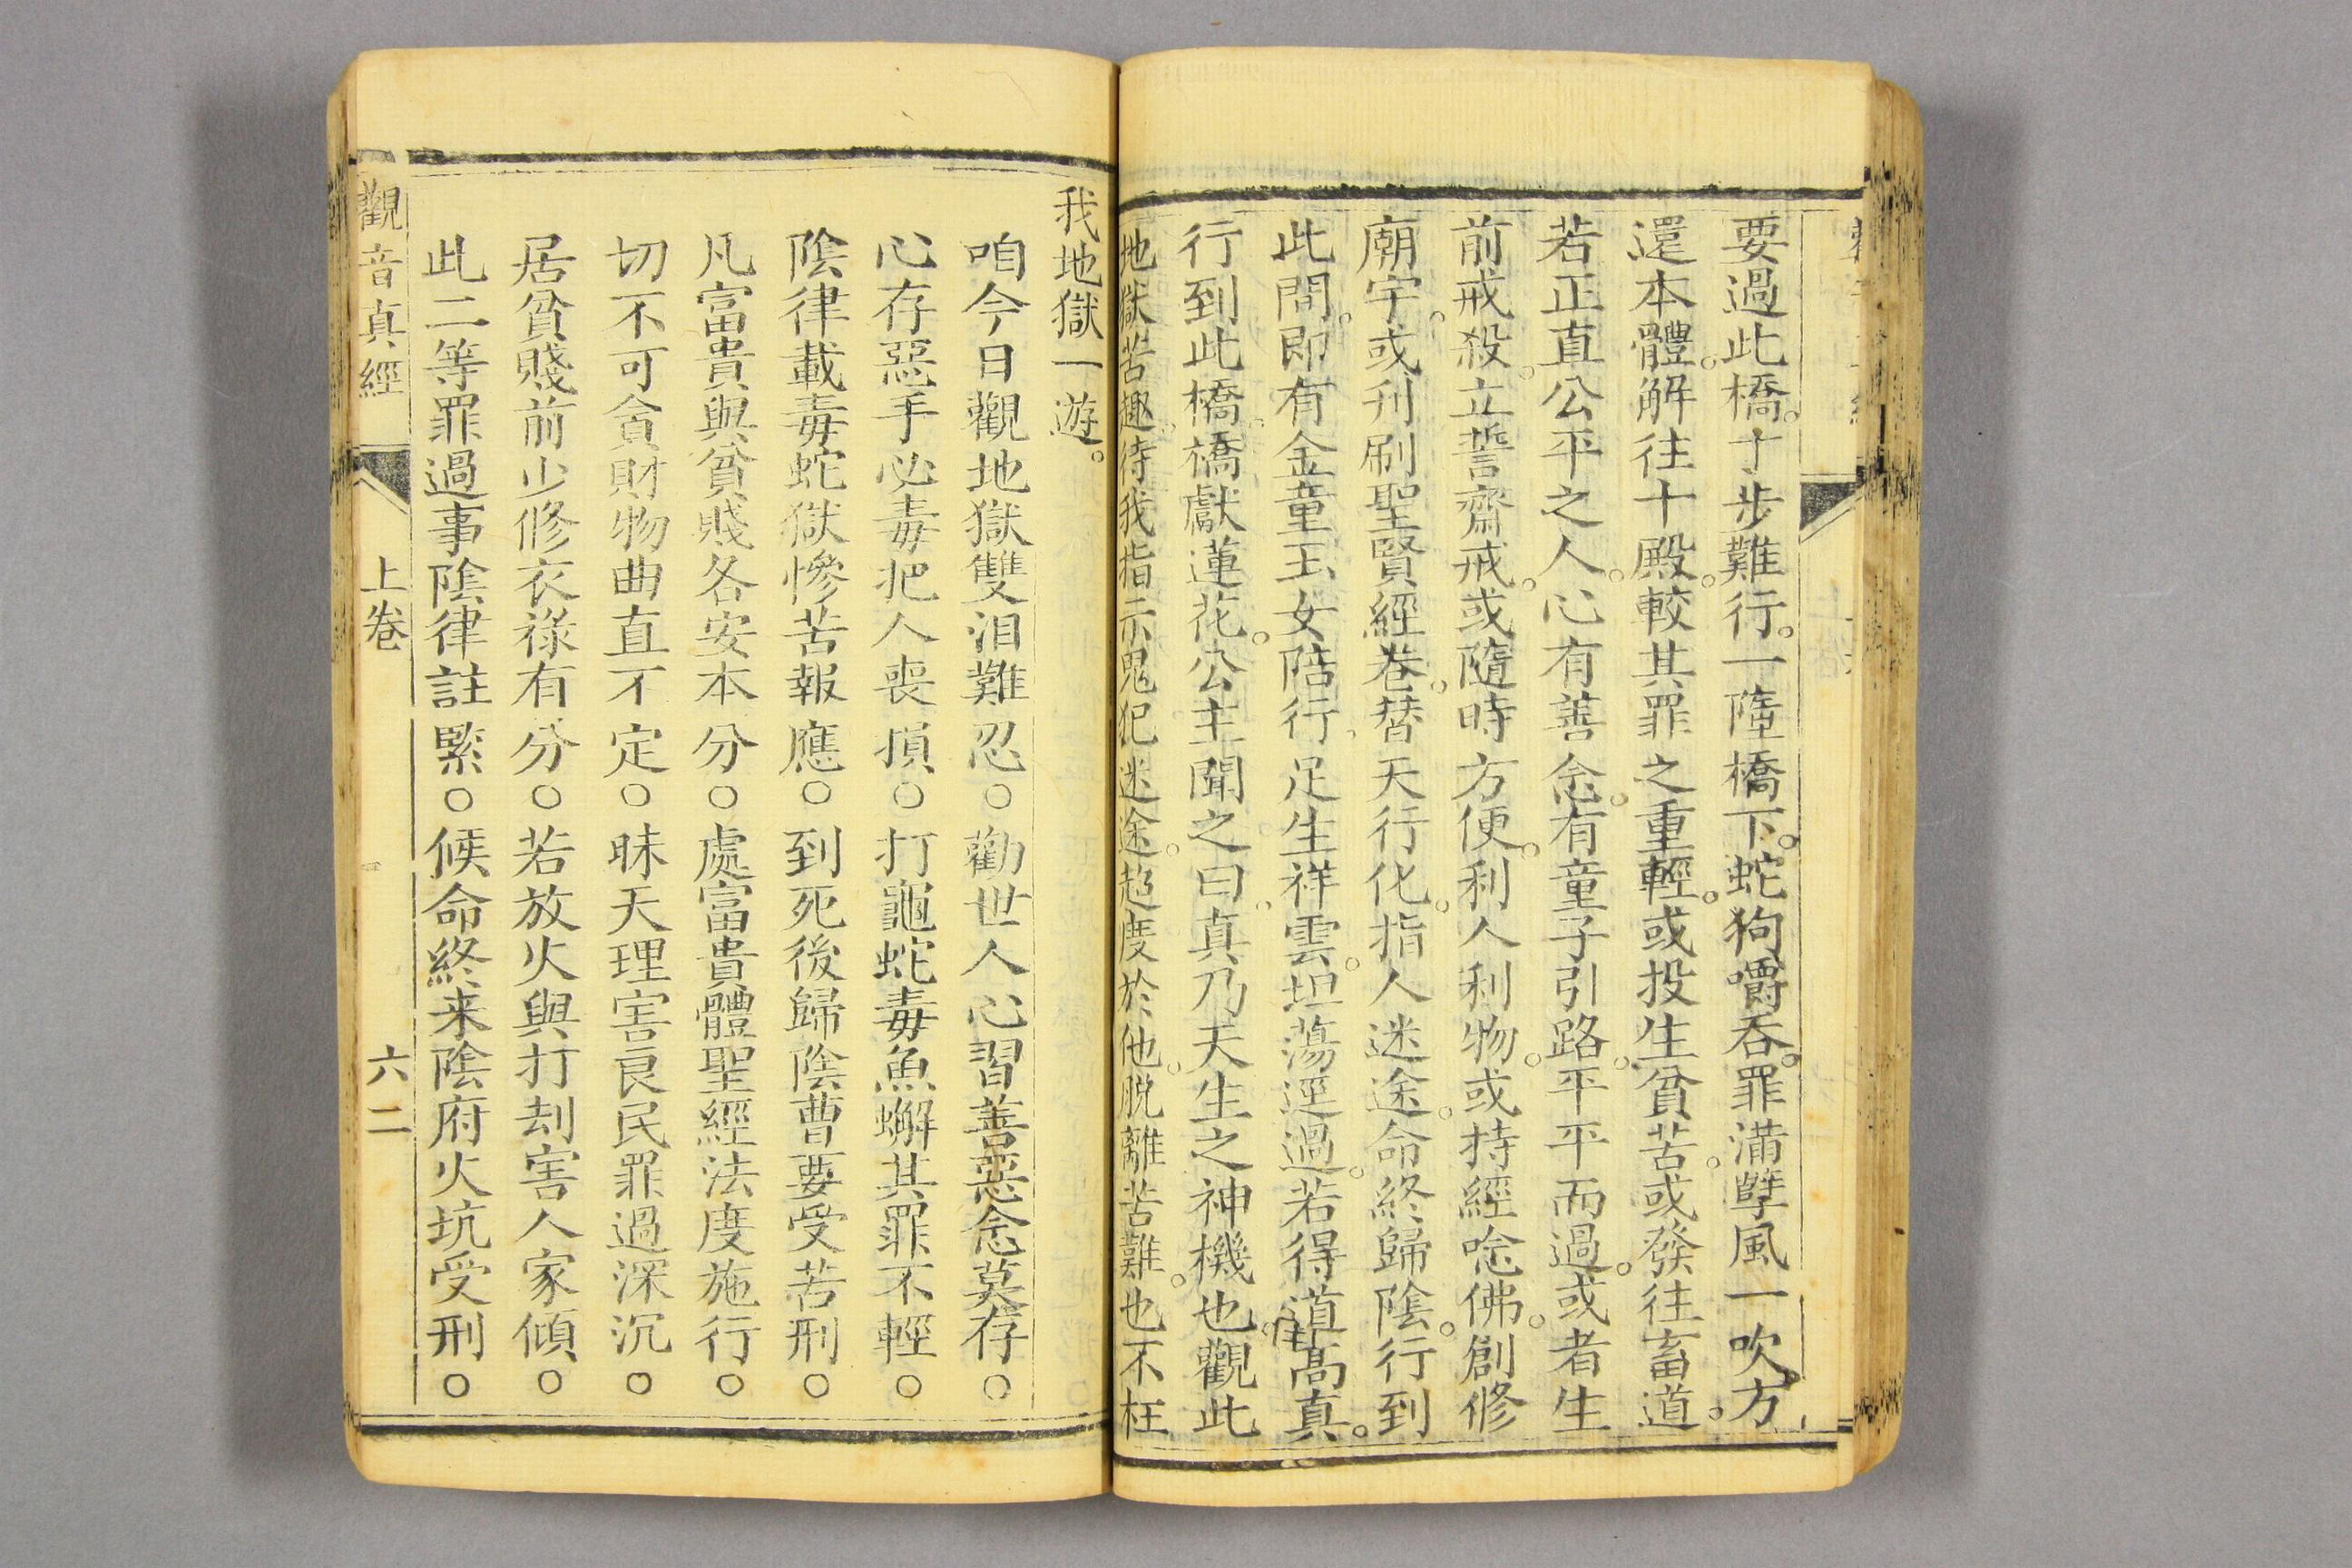 要過此橋。十步難行。一墮橋下。蛇狗嚼吞。罪滿孽風一吹。方
還本體。解往十殿。較其罪之重輕。或投生貧苦。或發往畜道。
若正直公平之人。心有善念。有童子引路。平平而過。或者生
前戒殺。立誓齋戒。或隨時方便。利人利物。或持經唸佛。創修
廟宇。或刋刷聖賢經卷。替天行化。指人迷途。命終歸陰。行到
此間。即有金童玉女陪行。足生祥雲。坦蕩逕過。若得道高真。
行到此橋。橋獻蓮花。公主聞之曰。真乃天生之神機也。觀此
地獄苦趣。待我指示鬼犯迷途。超度於他。脫離苦難。也不枉
我地獄一遊。
咱今日觀地獄雙泪難忍○勸世人心習善惡念莫存○
心存惡手必毒把人喪損○打龜蛇毒魚蠏其罪不輕○
陰律載毒蛇獄慘苦報應○到死後歸陰曹要受苦刑○
凡富貴與貧賤各安本分○處富貴體聖經法度施行○
切不可貪財物曲直不定○昧天理害良民罪過深沉○
居貧賤前少修衣祿有分○若放火與打刦害人家傾○
此二等罪過事陰律註緊○候命終来陰府火坑受刑○
觀音真經 上卷 六二